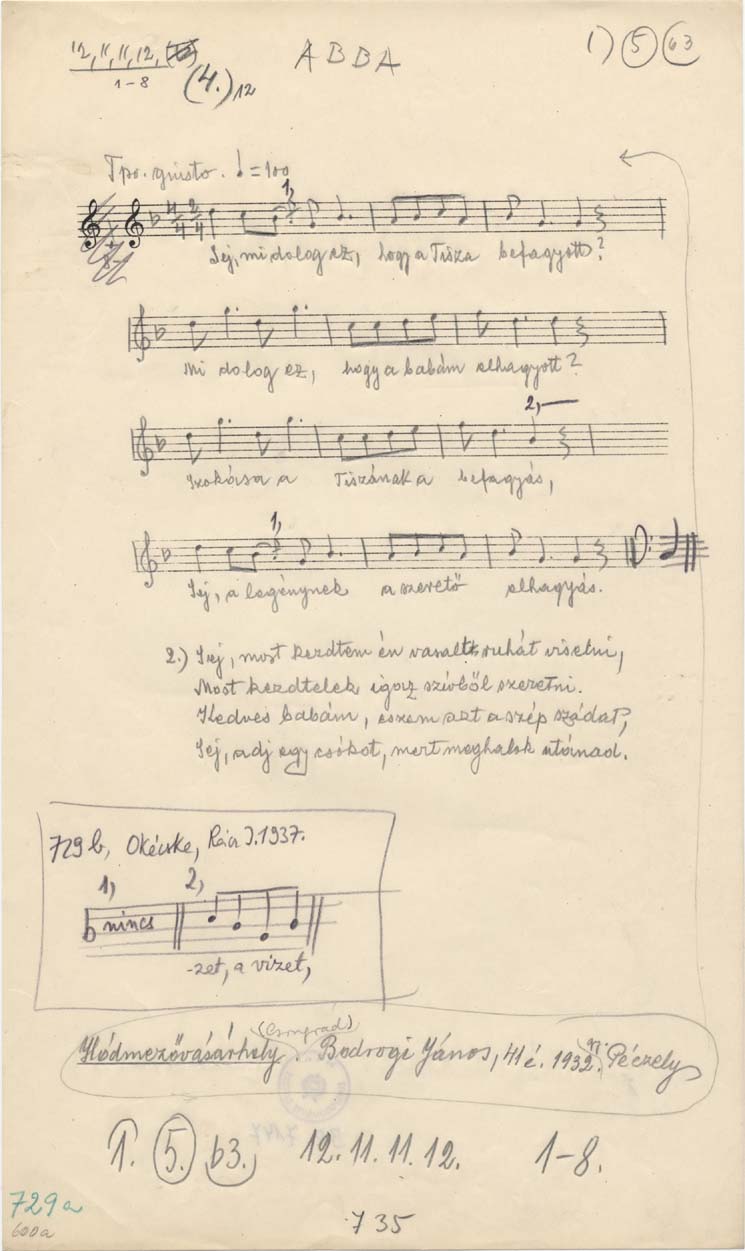 12, 11, 11, 12,
1-8
(4.) 12
ABBA
1) 5 b3
Tpo. giusto. ♩=100
1,
4/4 2/4
Jej, mi dolog ez, hogy a Tisza befagyott?
Mi dolog ez, hogy a babám elhagyott?
2,
Szokása a Tiszának a befagyás,
1,
Jej, a legénynek a szerető elhagyás.
2.) Jej, most kezdtem én vasalt ruhát viselni,
Most kezdtelek igaz szívből szeretni.
Kedves babám, eszem azt a szép szádat,
Jej, adj egy csókot, mert meghalok utánad.
729 b, Ókécske, Rácz I. 1937.
1, 2,
nincs
-zet, a vizet,
(Csongrád)
Hódmezővásárhely. Bodrogi János, 41 é. 1932. Péczely
1. 5. b3. 12. 11. 11. 12. 1-8.
729a
600a
735